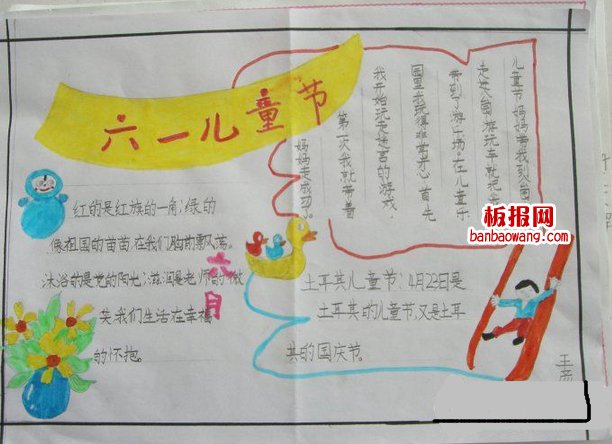 六一儿童节
红的是红旗的一角,绿的
像祖国的苗苗.在我们胸前飘荡。
沐浴的是党的阳光,滋润是老师的微
笑我们生活在幸福
的怀抱。
六月
儿童节妈妈带我到
走进公园游玩车就把我
带到了游乐场.在儿童乐
园里我玩得非常开心.首先
我开始玩走迷宫的游戏,
第一次我就带着
妈妈走成功了。
土耳其儿童节:4月23日是
土耳其的儿童节,又是土耳
其的国庆节.
王
板报网
banbaowang.com